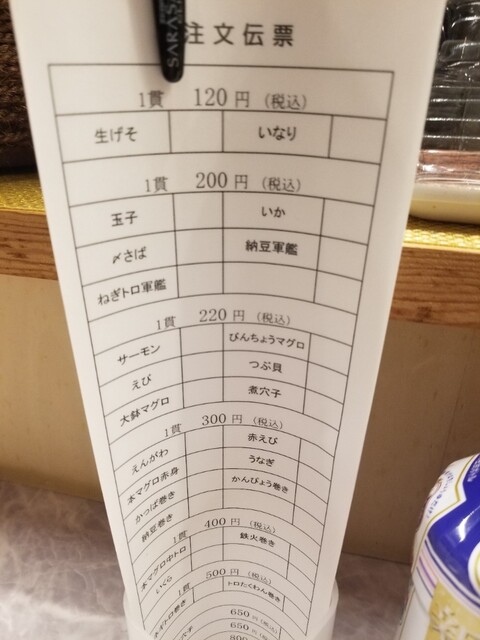 SARASA
注文伝票
1貫 120円 (税込)
生げそ いなり
1貫 200円 (税込)
玉子 いか
〆さば 納豆軍艦
ねぎトロ軍艦
1貫 220円 (税込)
サーモン びんちょうマグロ
えび つぶ貝
大鉢マグロ 煮穴子
1貫 300円 (税込)
えんがわ 赤えび
本マグロ赤身 うなぎ
かっぱ巻き かんぴょう巻き
納豆巻き
1貫 400円 (税込)
本マグロ中トロ 鉄火巻き
いくら
1貫 500円 (税込)
ネギトロ巻き トロたくわん巻き
穴子 650円(税込)
650円
800